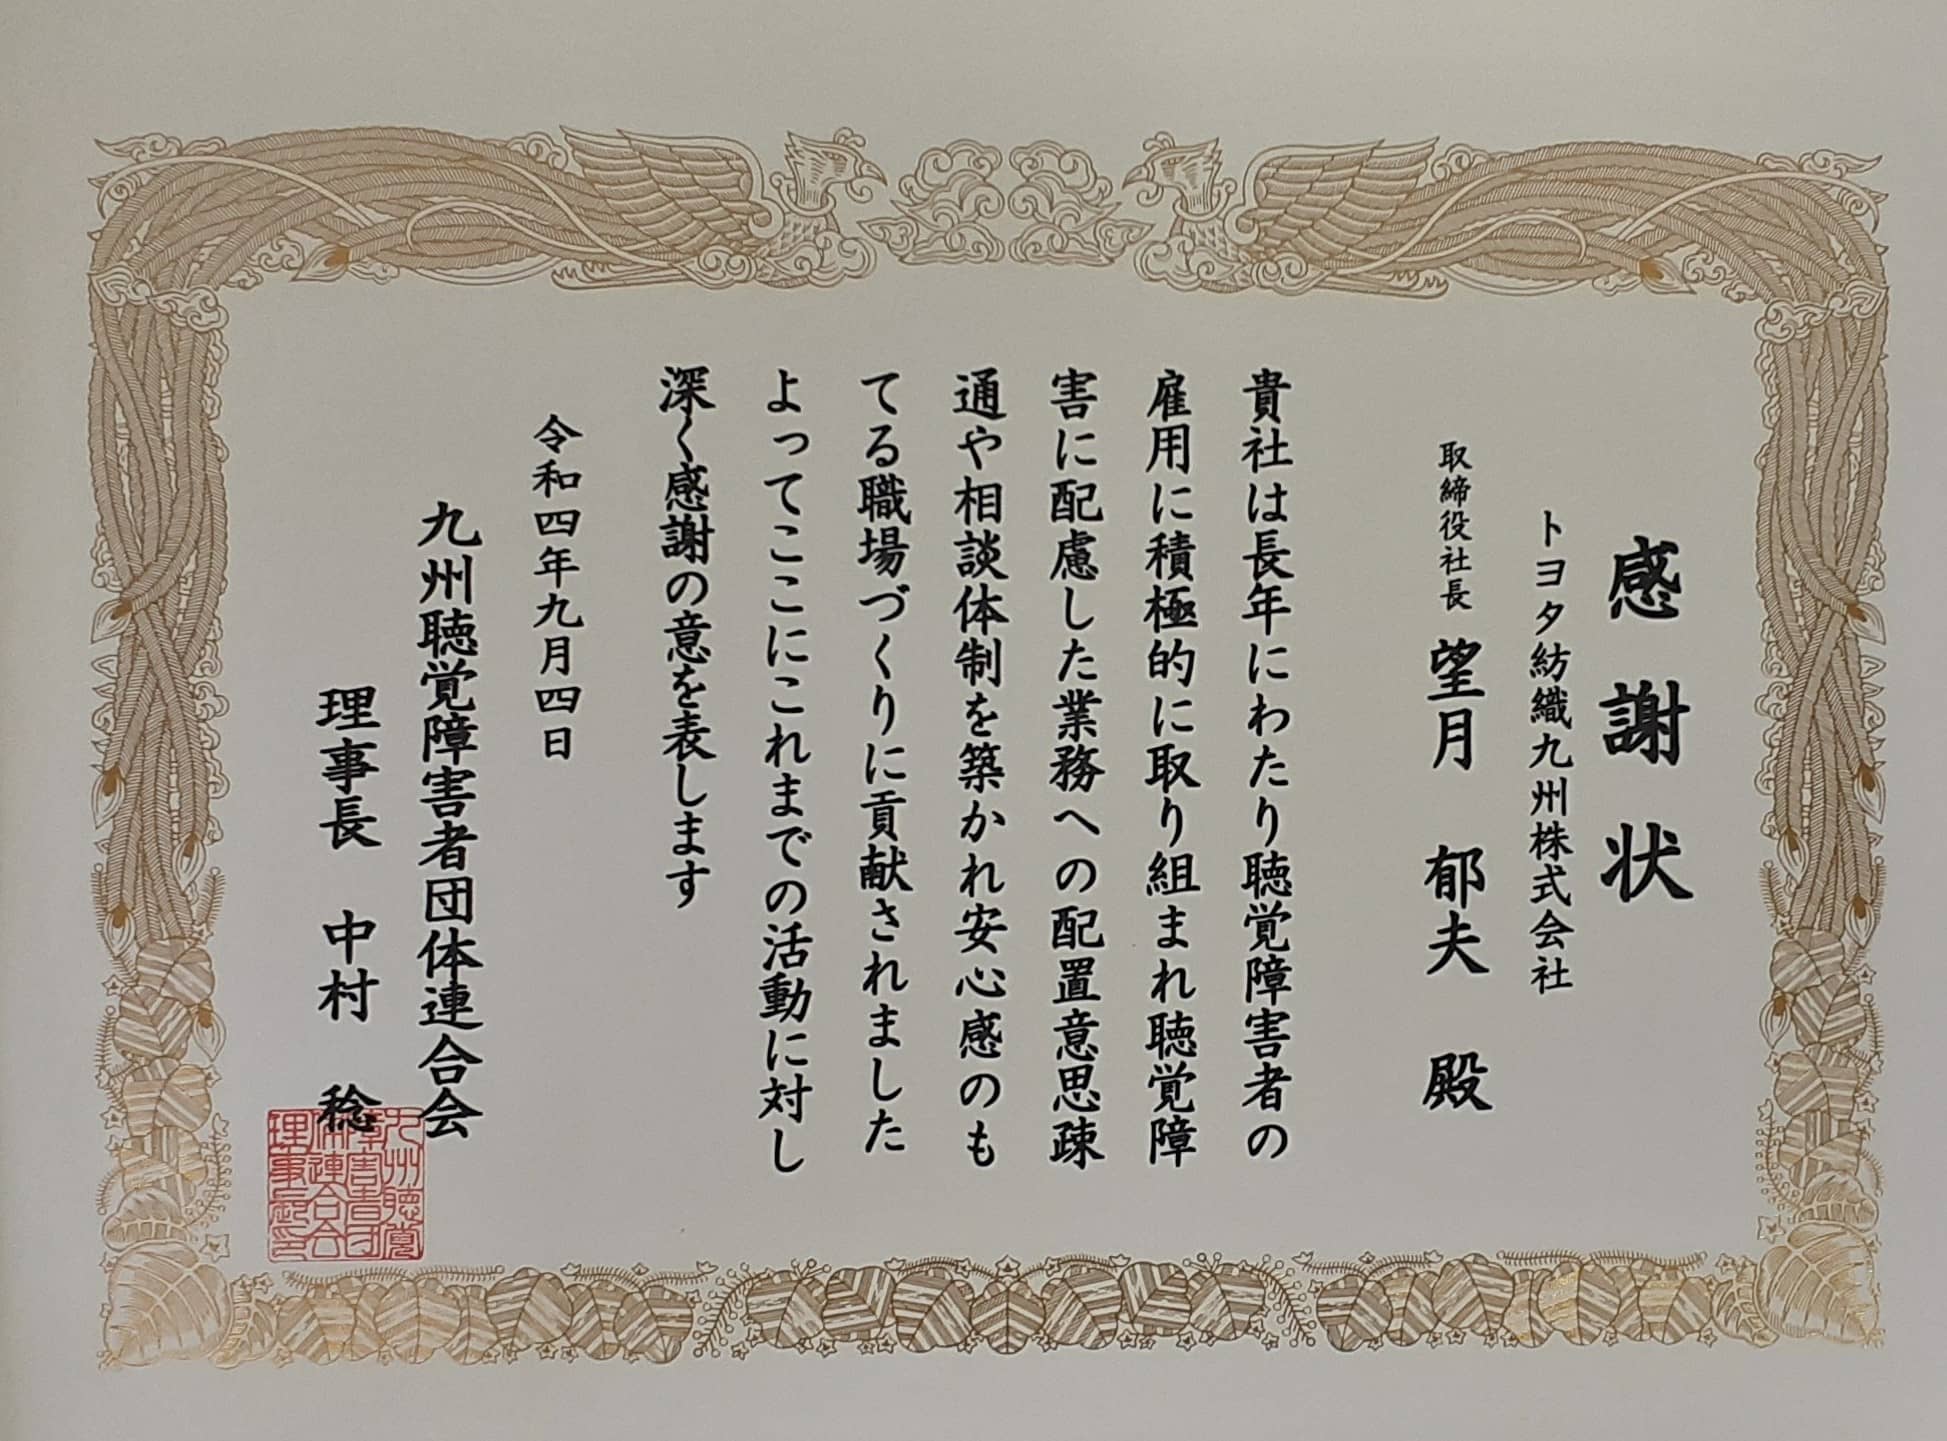 感謝状
トヨタ紡織九州株式会社
取締役社長 望月 郁夫 殿
貴社は長年にわたり聴覚障害者の
雇用に積極的に取り組まれ聴覚障
害に配慮した業務への配置意思疎
通や相談体制を築かれ安心感のも
てる職場づくりに貢献されました
よってここにこれまでの活動に対し
深く感謝の意を表します
令和四年九月四日
九州聴覚障害者団体連合会
理事長 中村 稔
九州聴覚
障害者団
体連合会
理事長印